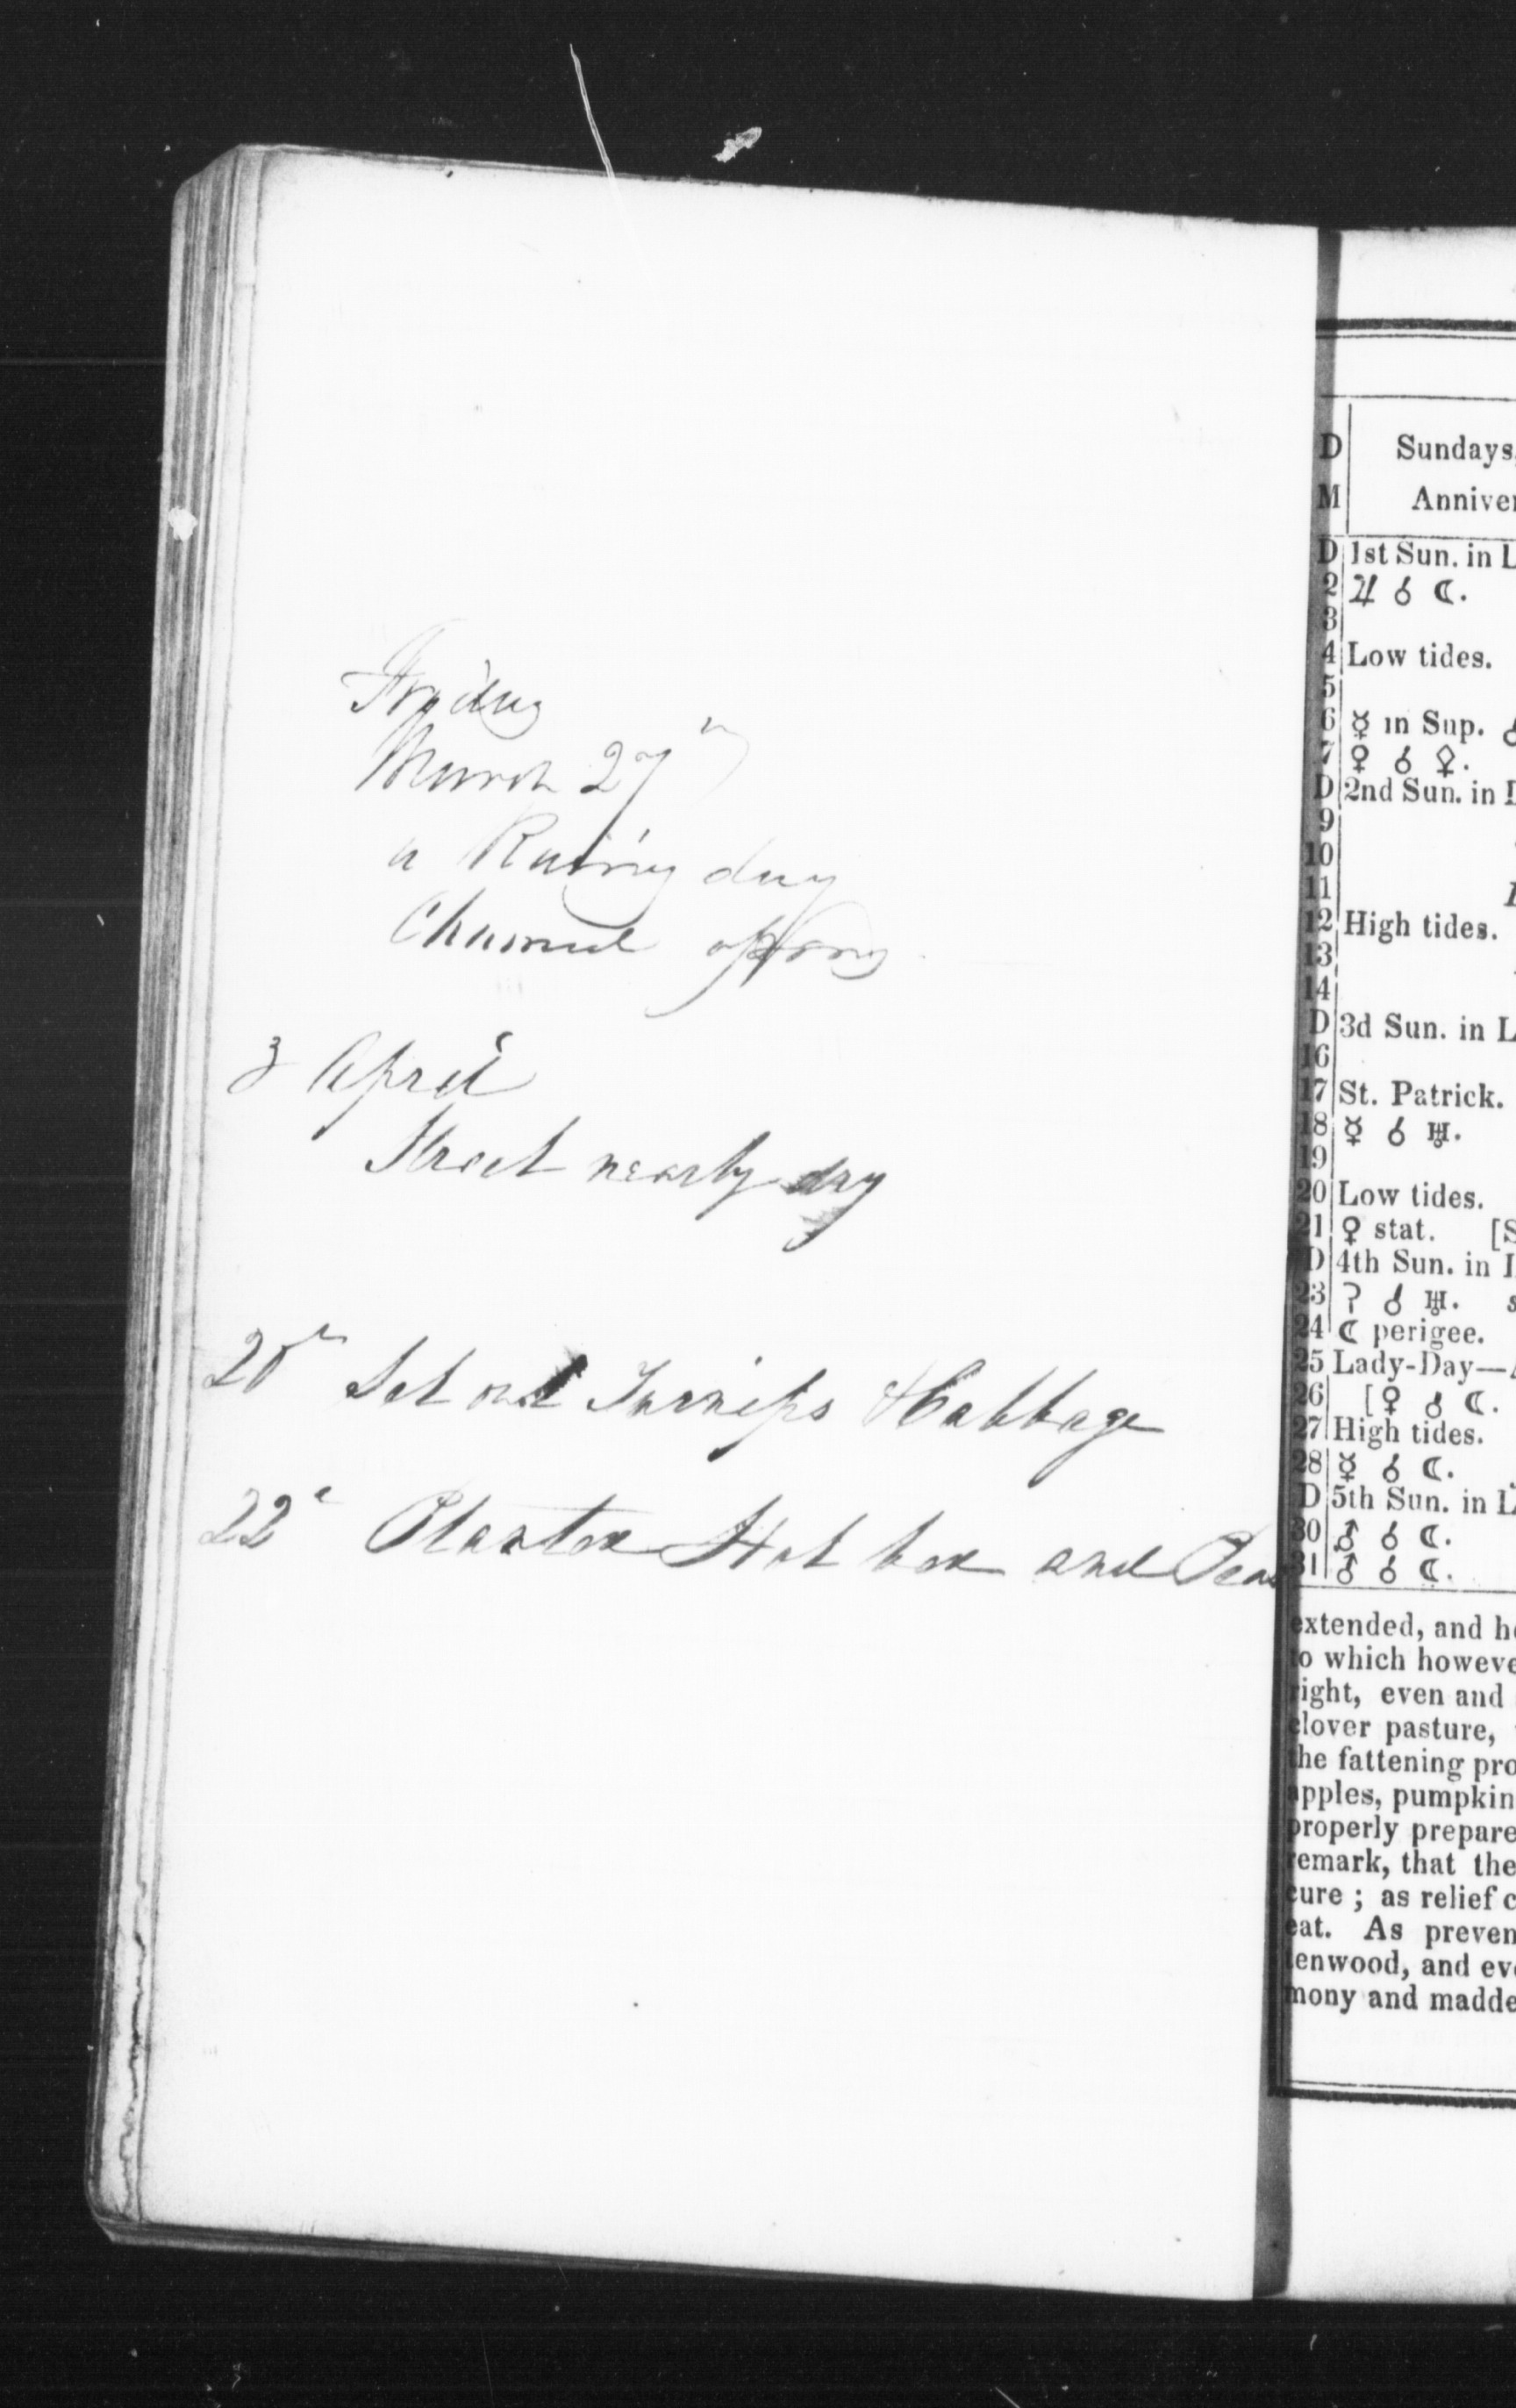 Fryday
March 27th
a Rainy day
Channel opening
3 April
Street nearly dry
20th Set out Turnips & Cabbage
22d Planted Hot bed and Peas
D Sundays,
M Anniver
D 1st Sun. in L
2 ♃ ☌ ☾.
3
4 Low tides.
5
6 ☿ in Sup. ☌
7 ♀ ☌ ⚴.
D 2nd Sun. in
9
10
11
12 High tides.
13
14
D 3d Sun. in L
16
17 St. Patrick.
18 ☿ ☌ ♅.
19
20 Low tides.
21 ♀ stat. [S
D 4th Sun. in
23 ⚳ ☌ ♅. s
24 ☾ perigee.
25 Lady-Day—A
26 [♀ ☌ ☾.
27 High tides.
28 ☿ ☌ ☾.
D 5th Sun. in L
30 ♂ ☌ ☾.
31 ♂ ☌ ☾.
extended, and he
to which howeve
right, even and
clover pasture,
the fattening pro
apples, pumpkin
properly prepare
remark, that the
cure ; as relief c
eat. As preven
tenwood, and eve
mony and madde